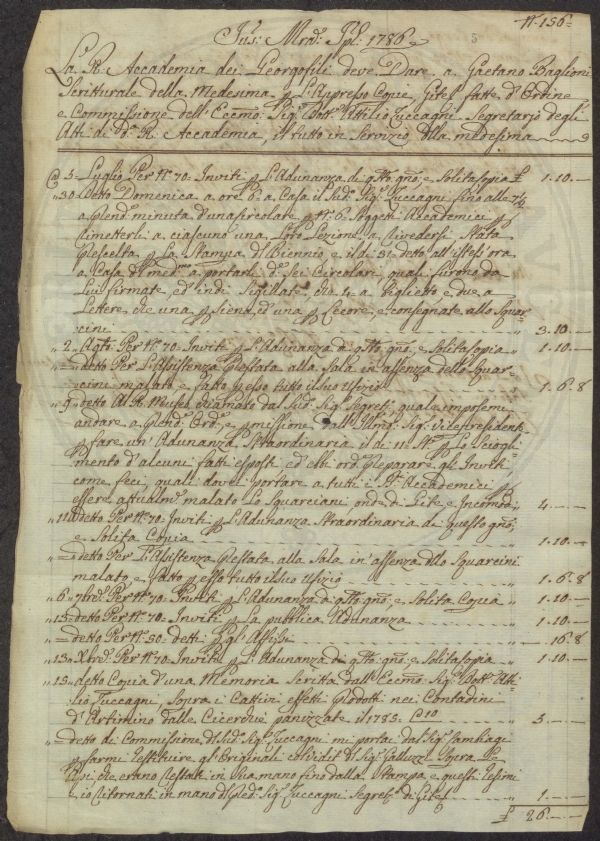 N. 156
5
Jus: Mrd: Jpl: 1786
La R. Accademia dei Georgofili deve Dare a Gaetano Baglioni
Scritturale della Medesima p. L'Appresso Copie, Gite fatte d'Ordine
e Commissione dell'Eccmo: Sig.r Dott.r Attilio Zuccagni Segretario degli
Atti di d.a R. Accademia, il tutto in Servizio della medesima
@ 5. Luglio Per N. 70. Inviti p. L'Adunanza di q.to gno, e Solita Copia £ 1.10.—
" 30. Detto Domenica a ore 6. a Casa il Sud.o Sig.r Zuccagni fino alle 7½
a prend.e minuta d'una Circolare p. N. 6. Soggetti Accademici p.
rimetterli a ciascuno una Loro Lezione a rivedersi Stata
Prescelta p. La Stampa del Biennio, e il dì 31. detto all'istess'ora
a Casa del med.mo a portarli de' Sei Circolari quali furono da
Lui firmate, ed indi Sigillate, che 4. a Viglietto e due a
Lettere che una p. Siena, ed una p. e consegnate allo Squar-
cini " 3.10.—
" 2. Agto. Per N. 70. Inviti p. L'Adunanza di q.to gno, e Solita Copia " 1.10.—
" = detto Per L'Assistenza Prestata alla Sala in assenza dello Squar-
cini malato e fatto p. esso tutto il suo Ufizio " 1.6.8
" 9. detto Al R. Museo chiamato dal Sud.o Sig.r Segret.o quale impose mi
andare a prend.e Ord.e e p.missione dall' Sig.r Vicepresidente
p. fare un'Adunanza Straordinaria il dì 11. St.e p. Lo Sciogli-
mento d'alcuni fatti esposti, ed ebbi ord.e Preparare gli Inviti
come feci, quali dovei portare a tutti i Accademici p.
essere attualm.e malato Lo Squarciani onde di Gite e Incomodo " 4.—.—
" 11. detto Per N. 70. Inviti p. L'Adunanza Straordinaria di questo gno,
e Solita Copia " 1.10.—
" = detto Per L'Assistenza Prestata alla Sala in assenza dello Squarcini
malato, e fatto p. esso tutto il suo Ufizio " 1.6.8
" 6. 7bre. Per N. 70. Inviti p. L'Adunanza di q.to gno, e Solita Copia " 1.10.—
" 15. detto Per N. 70. Inviti p. La pubblica Adunanza " 1.10.—
" = detto Per N. 50. Detti " —.16.8
" 13. Xbre. Per N. 70. Inviti p. L'Adunanza di q.to gno, e Solita Copia " 1.10.—
" 15. detto Copia d'una Memoria Scritta dall'Eccmo Sig.r Dott.r Atti-
lio Zuccagni Sopra i Cattivi effetti Prodotti nei Contadini
d'Artimino dalle Cicerchie panizzate il 1785. C 10 " 5.—.—
" = detto di Commissione del Sud.o Sig.r Zuccagni mi portai dal Sig.r
p. farmi restituire gl'Originali del Sig.r Galluzzi Sopra Le
che erano restati in Sua mano fino dalla Stampa e questi
e io ritornati in mano del Pred.o Sig.r Zuccagni Segret.o di Gite " 1.—.—
£ 26.—.—